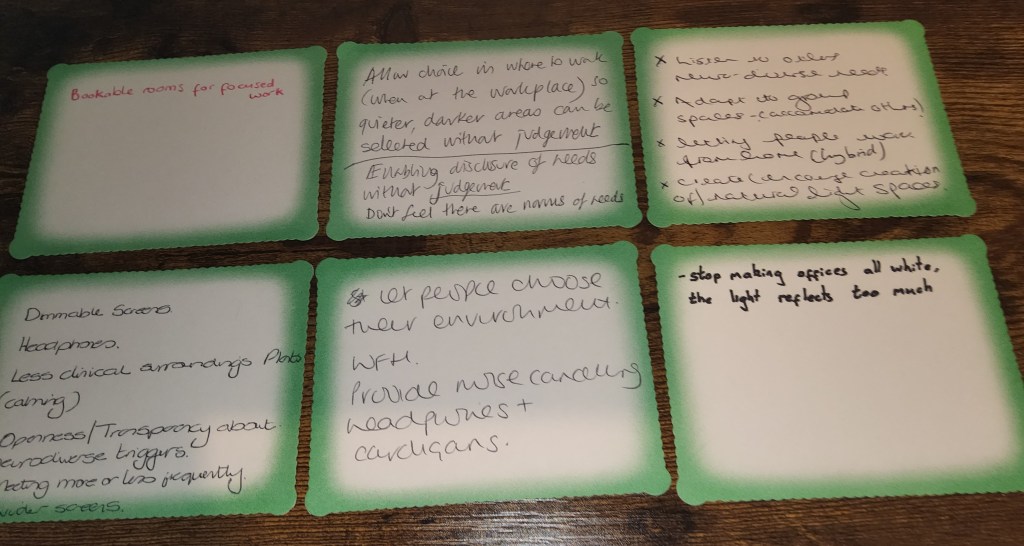 Bookable rooms for focused
work
Allow choice in where to work
(when at the workplace) so
quieter, darker areas can be
selected without judgement
Enabling disclosure of needs
without judgement
Dont feel there are norms of needs
x Listen to other
neuro-diverse needs
x Adapt to group
spaces - (accomodate others)
x letting people work
from home (hybrid)
x create (encourage creation
of) natural light spaces.
Dimmable Screens
Headphones.
Less clinical surroundings Plants
(calming)
Openness/Transparency about
neurodiverse triggers.
meeting more or less frequently.
screens.
Let people choose
their environment.
WFH.
Provide noise cancelling
headphones +
cardigans.
- stop making offices all white,
the light reflects too much